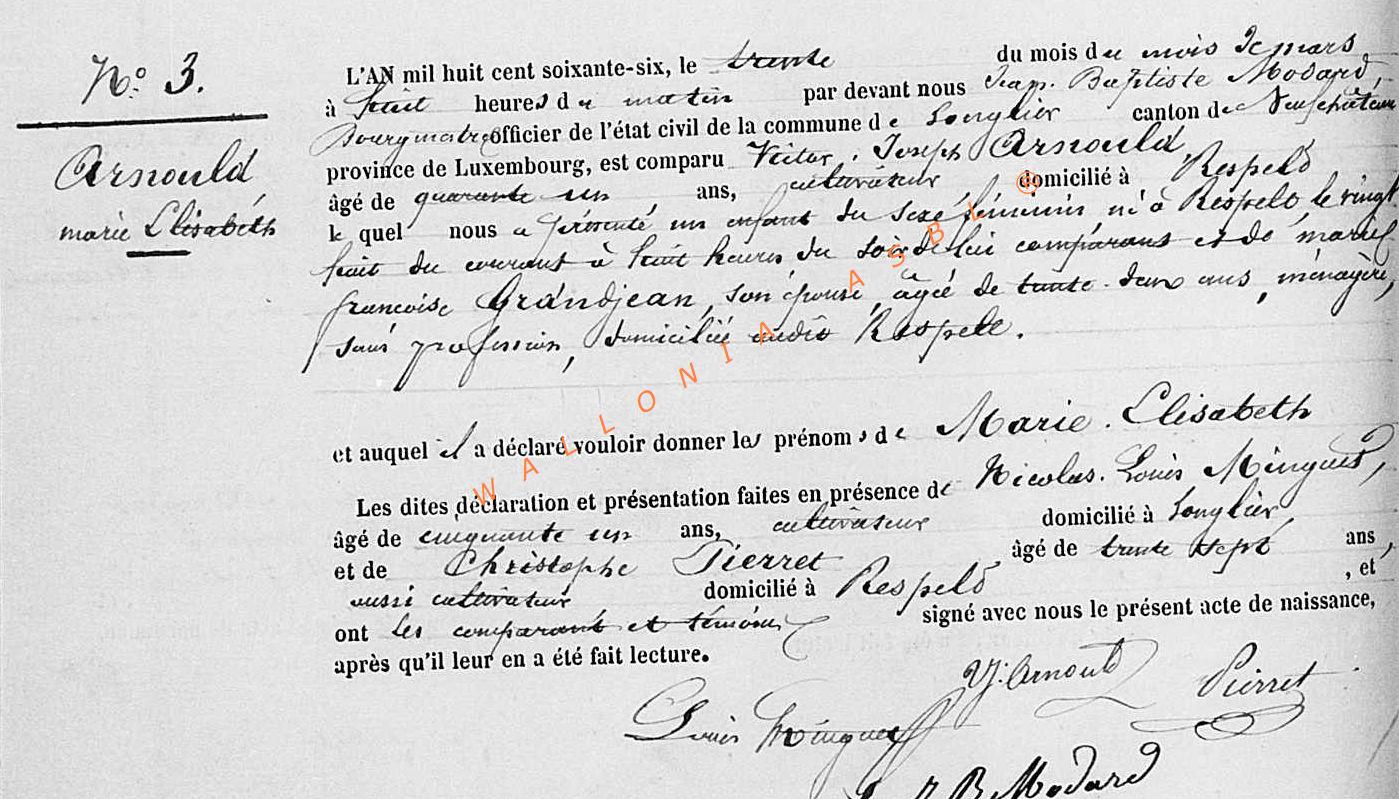 N° 3.
Arnould
marie Elisabeth
L'AN mil huit cent soixante-six, le trente du mois du mois de mars
à huit heures du matin par devant nous Jean Baptiste Modard,
Bourgmestre officier de l'état civil de la commune de Longlier canton de Neufchâteau
province de Luxembourg, est comparu Victor Joseph Arnould
âgé de quarante un ans, cultivateur domicilié à Respelt
le quel nous a présenté un enfant du sexe féminin né à Respelt le vingt
huit du courant à huit heures du soir de lui comparant et de marie
françoise Grandjean, son épouse, âgée de trente deux ans, ménagère,
sans profession, domiciliée audit Respelt.
et auquel il a déclaré vouloir donner les prénoms de Marie Elisabeth
Les dites déclaration et présentation faites en présence de Nicolas Louis Mingues,
âgé de cinquante un ans, cultivateur domicilié à Longlier,
et de Christophe Pierret âgé de trente sept ans,
aussi cultivateur domicilié à Respelt , et
ont les comparant et témoins signé avec nous le présent acte de naissance,
après qu'il leur en a été fait lecture.
V J Arnould Pierret
Louis Mingues
J B Modard
WALLONIA ASBL ®